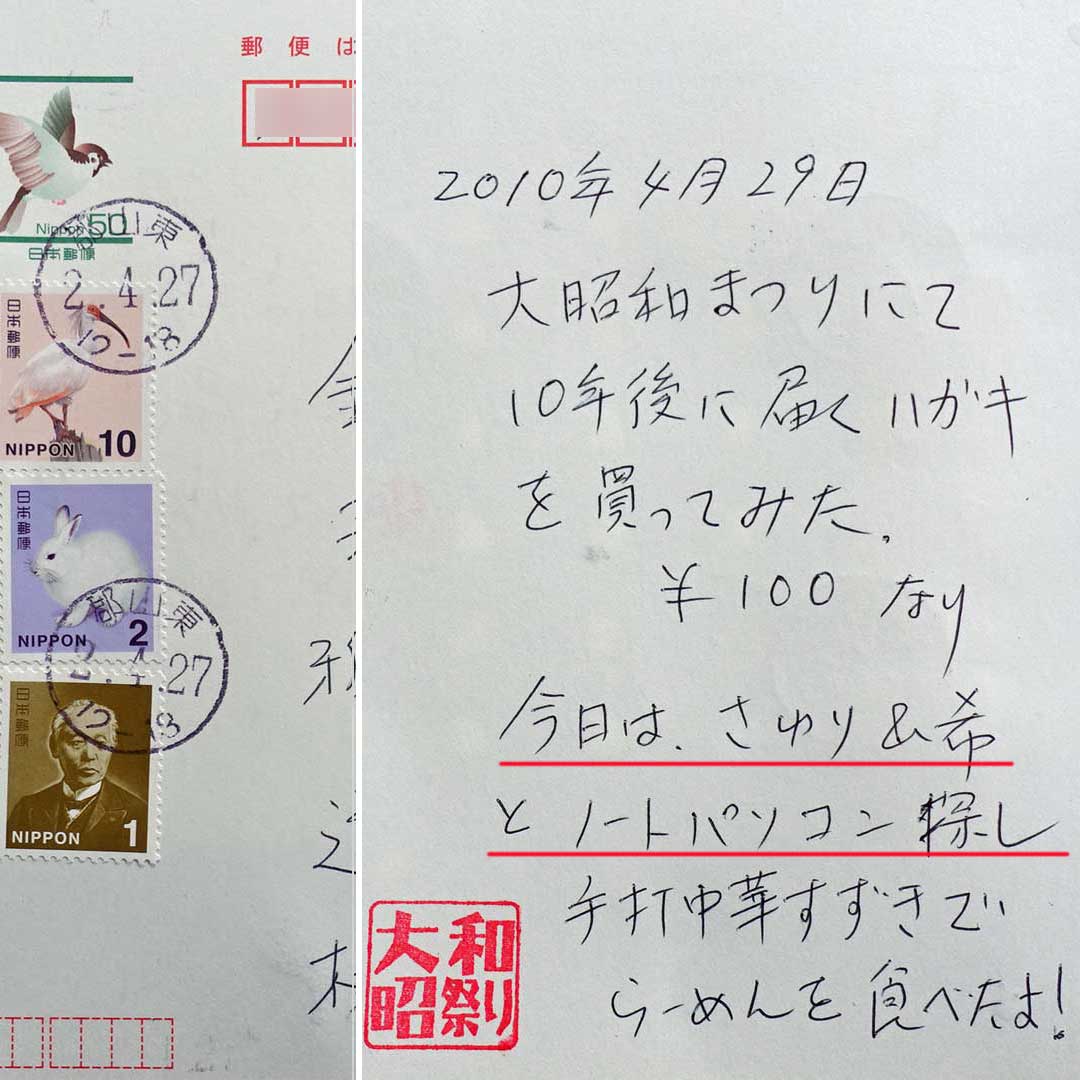 郵便は
Nippon 50
日本郵便
郡山東
2.4.27
12-18
日本郵便
NIPPON 10
日本郵便
NIPPON 2
郡山東
2.4.27
12-18
日本郵便
NIPPON 1
2010年4月29日
大昭和まつりにて
10年後に届くハガキ
を買ってみた。
¥100 なり
今日は、さゆり&希
とノートパソコン探し
手打中華すずきで
らーめんを食べたよ!
大昭和祭り